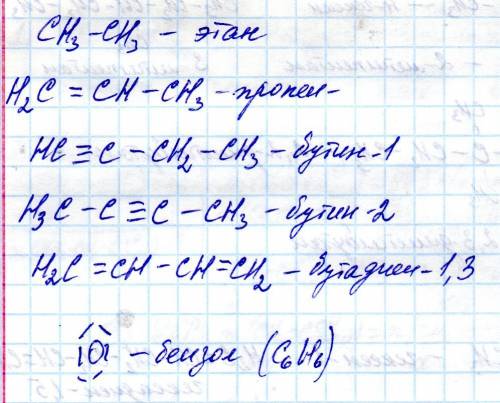 CH₃–CH₃ – этан
H₂C = CH – CH₃ – пропен-
HC ≡ C – CH₂ – CH₃ – бутин-1
H₃C – C ≡ C – CH₃ – бутин-2
H₂C = CH – CH = CH₂ – бутадиен-1,3
– бензол (C₆H₆)